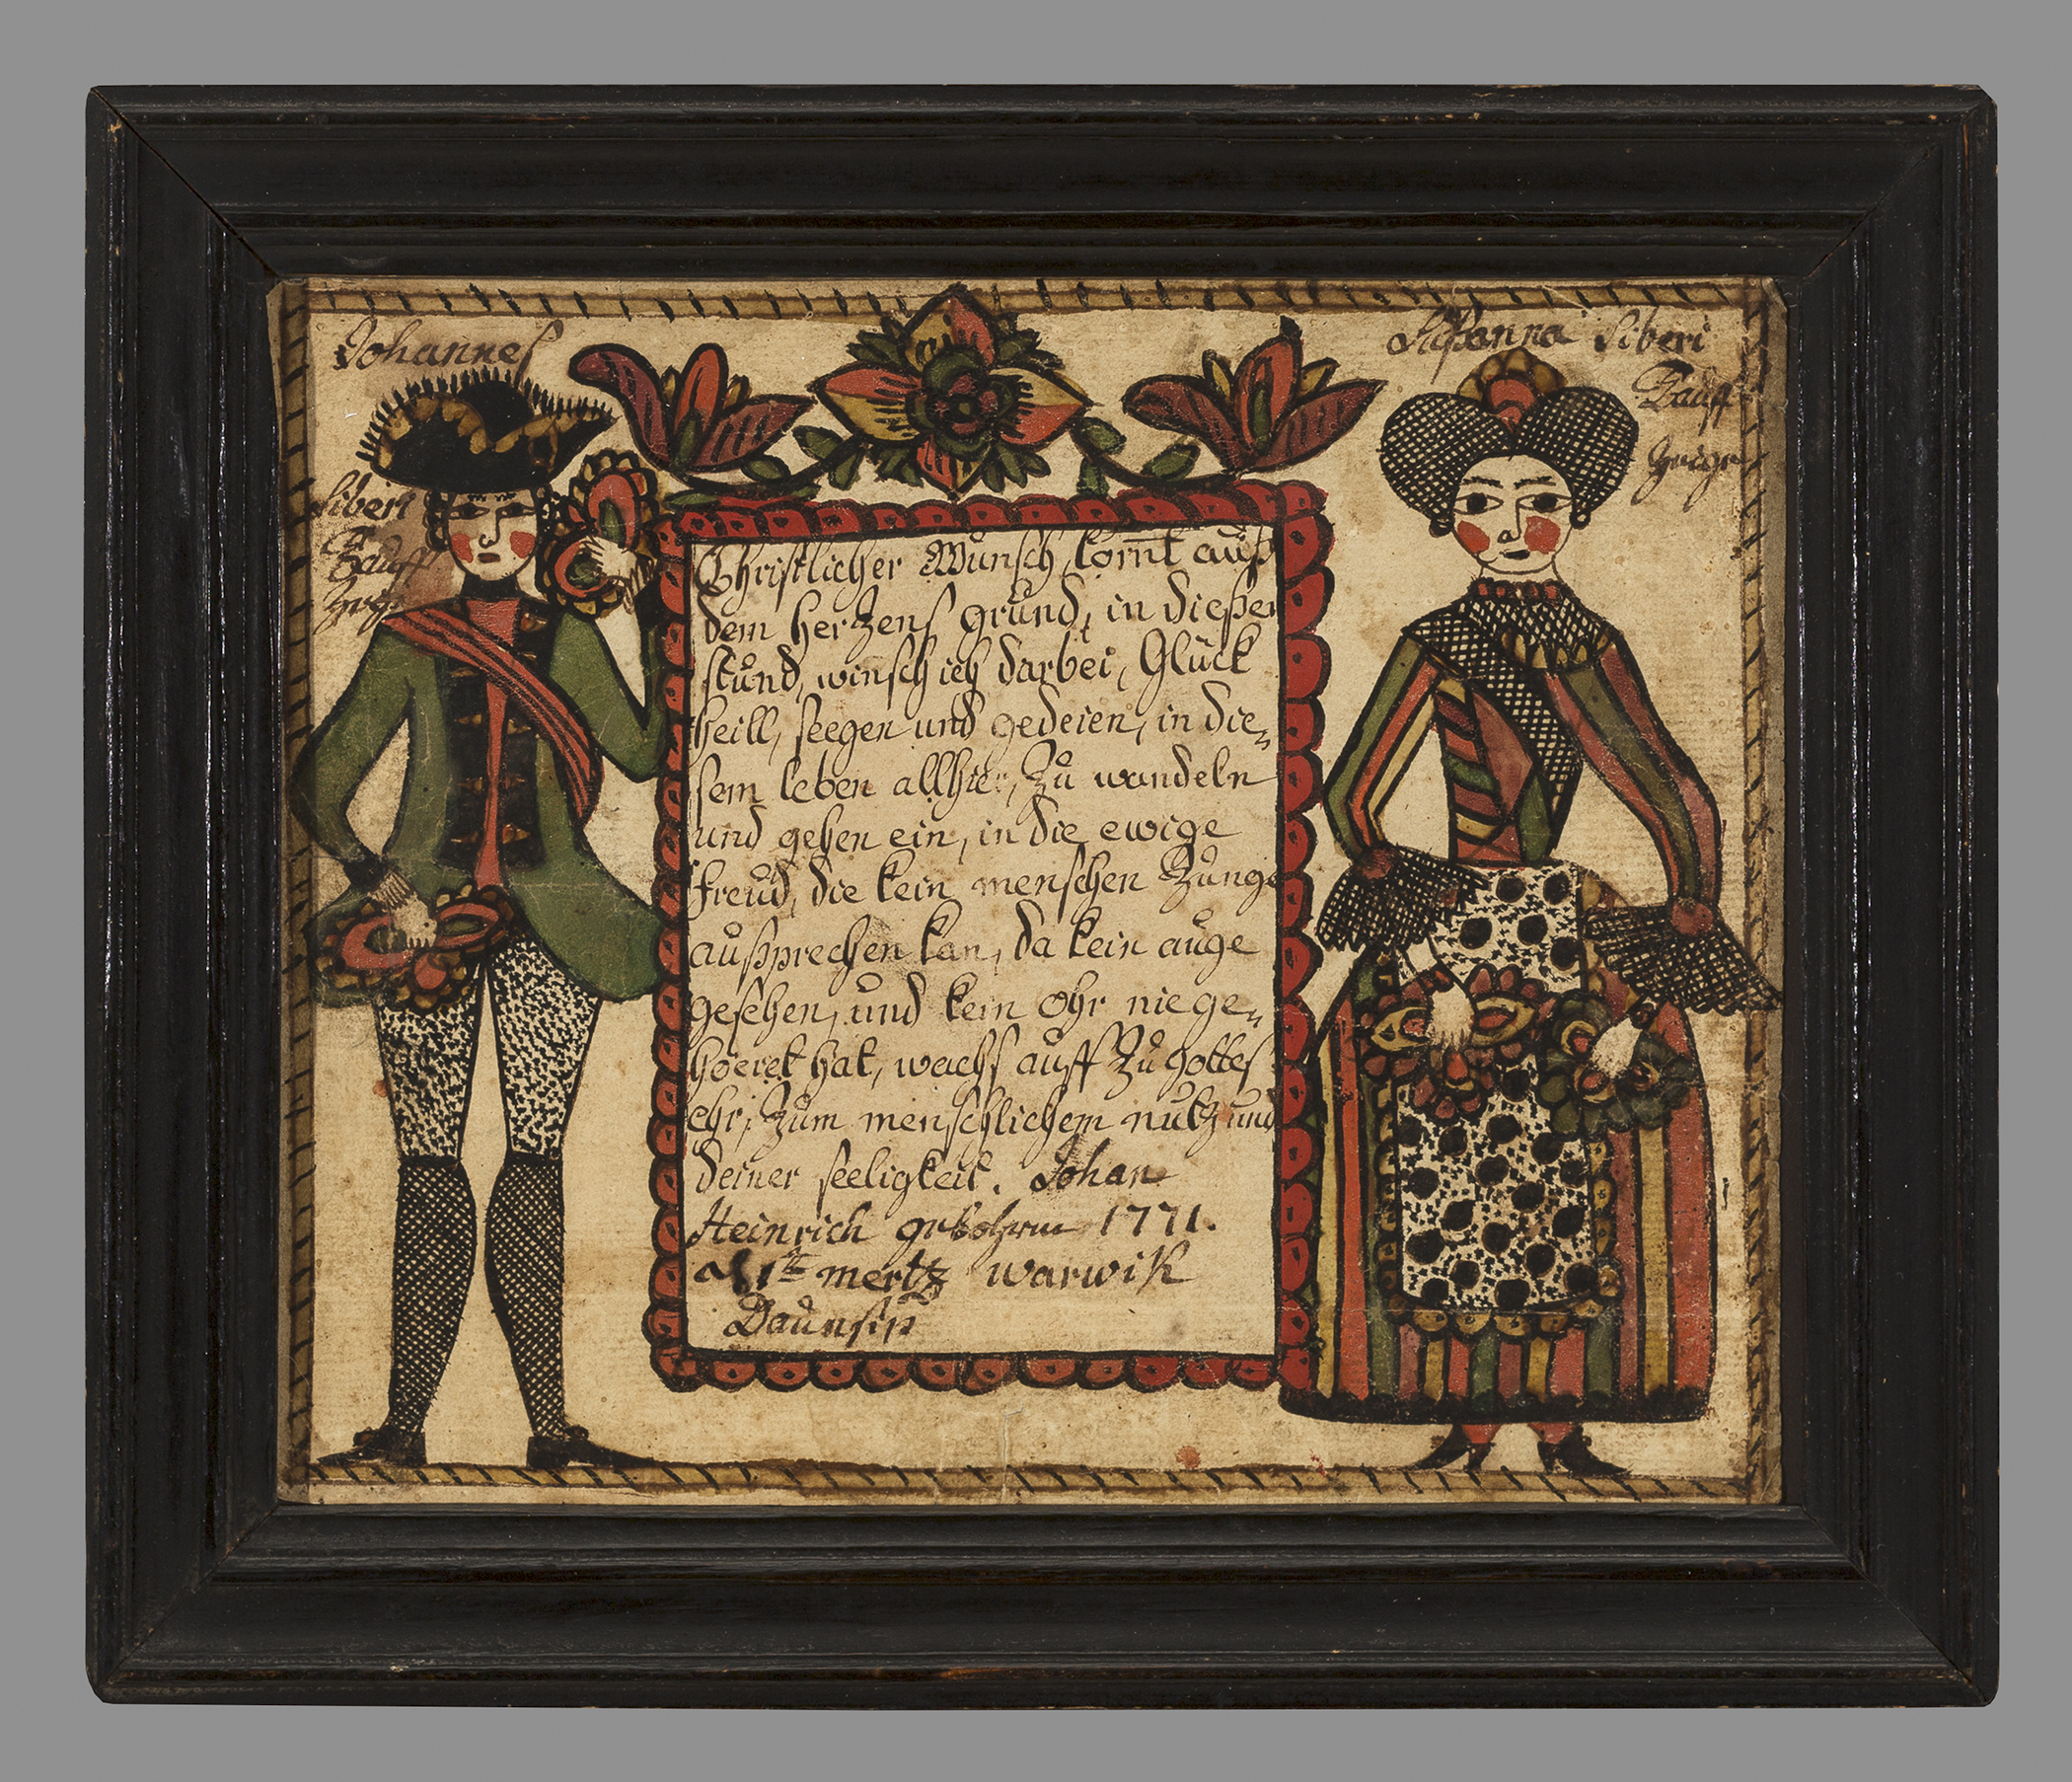 Johannes
Siberi
Tauff
Zeige
Susanna Siberi
Tauff
Zeige
Christlicher Wunsch, komt auß
dem hertzens grund, in dießer
stund, winsch ich darbei, Glück
heill, seegen und gedeien, in die„
sem leben allhier, Zu wandeln
und gehen ein, in die ewige
freud, die kein menschen Zunge
außprechen kan, da kein auge
gesehen, und kein ohr nie ge„
hoeret hat, wachs auff Zu gottes
ehr, Zum menschlichem nutz und
deiner seeligkeit. Johan
Heinrich gebohren 1771.
1te mertz warwik
Daunsip